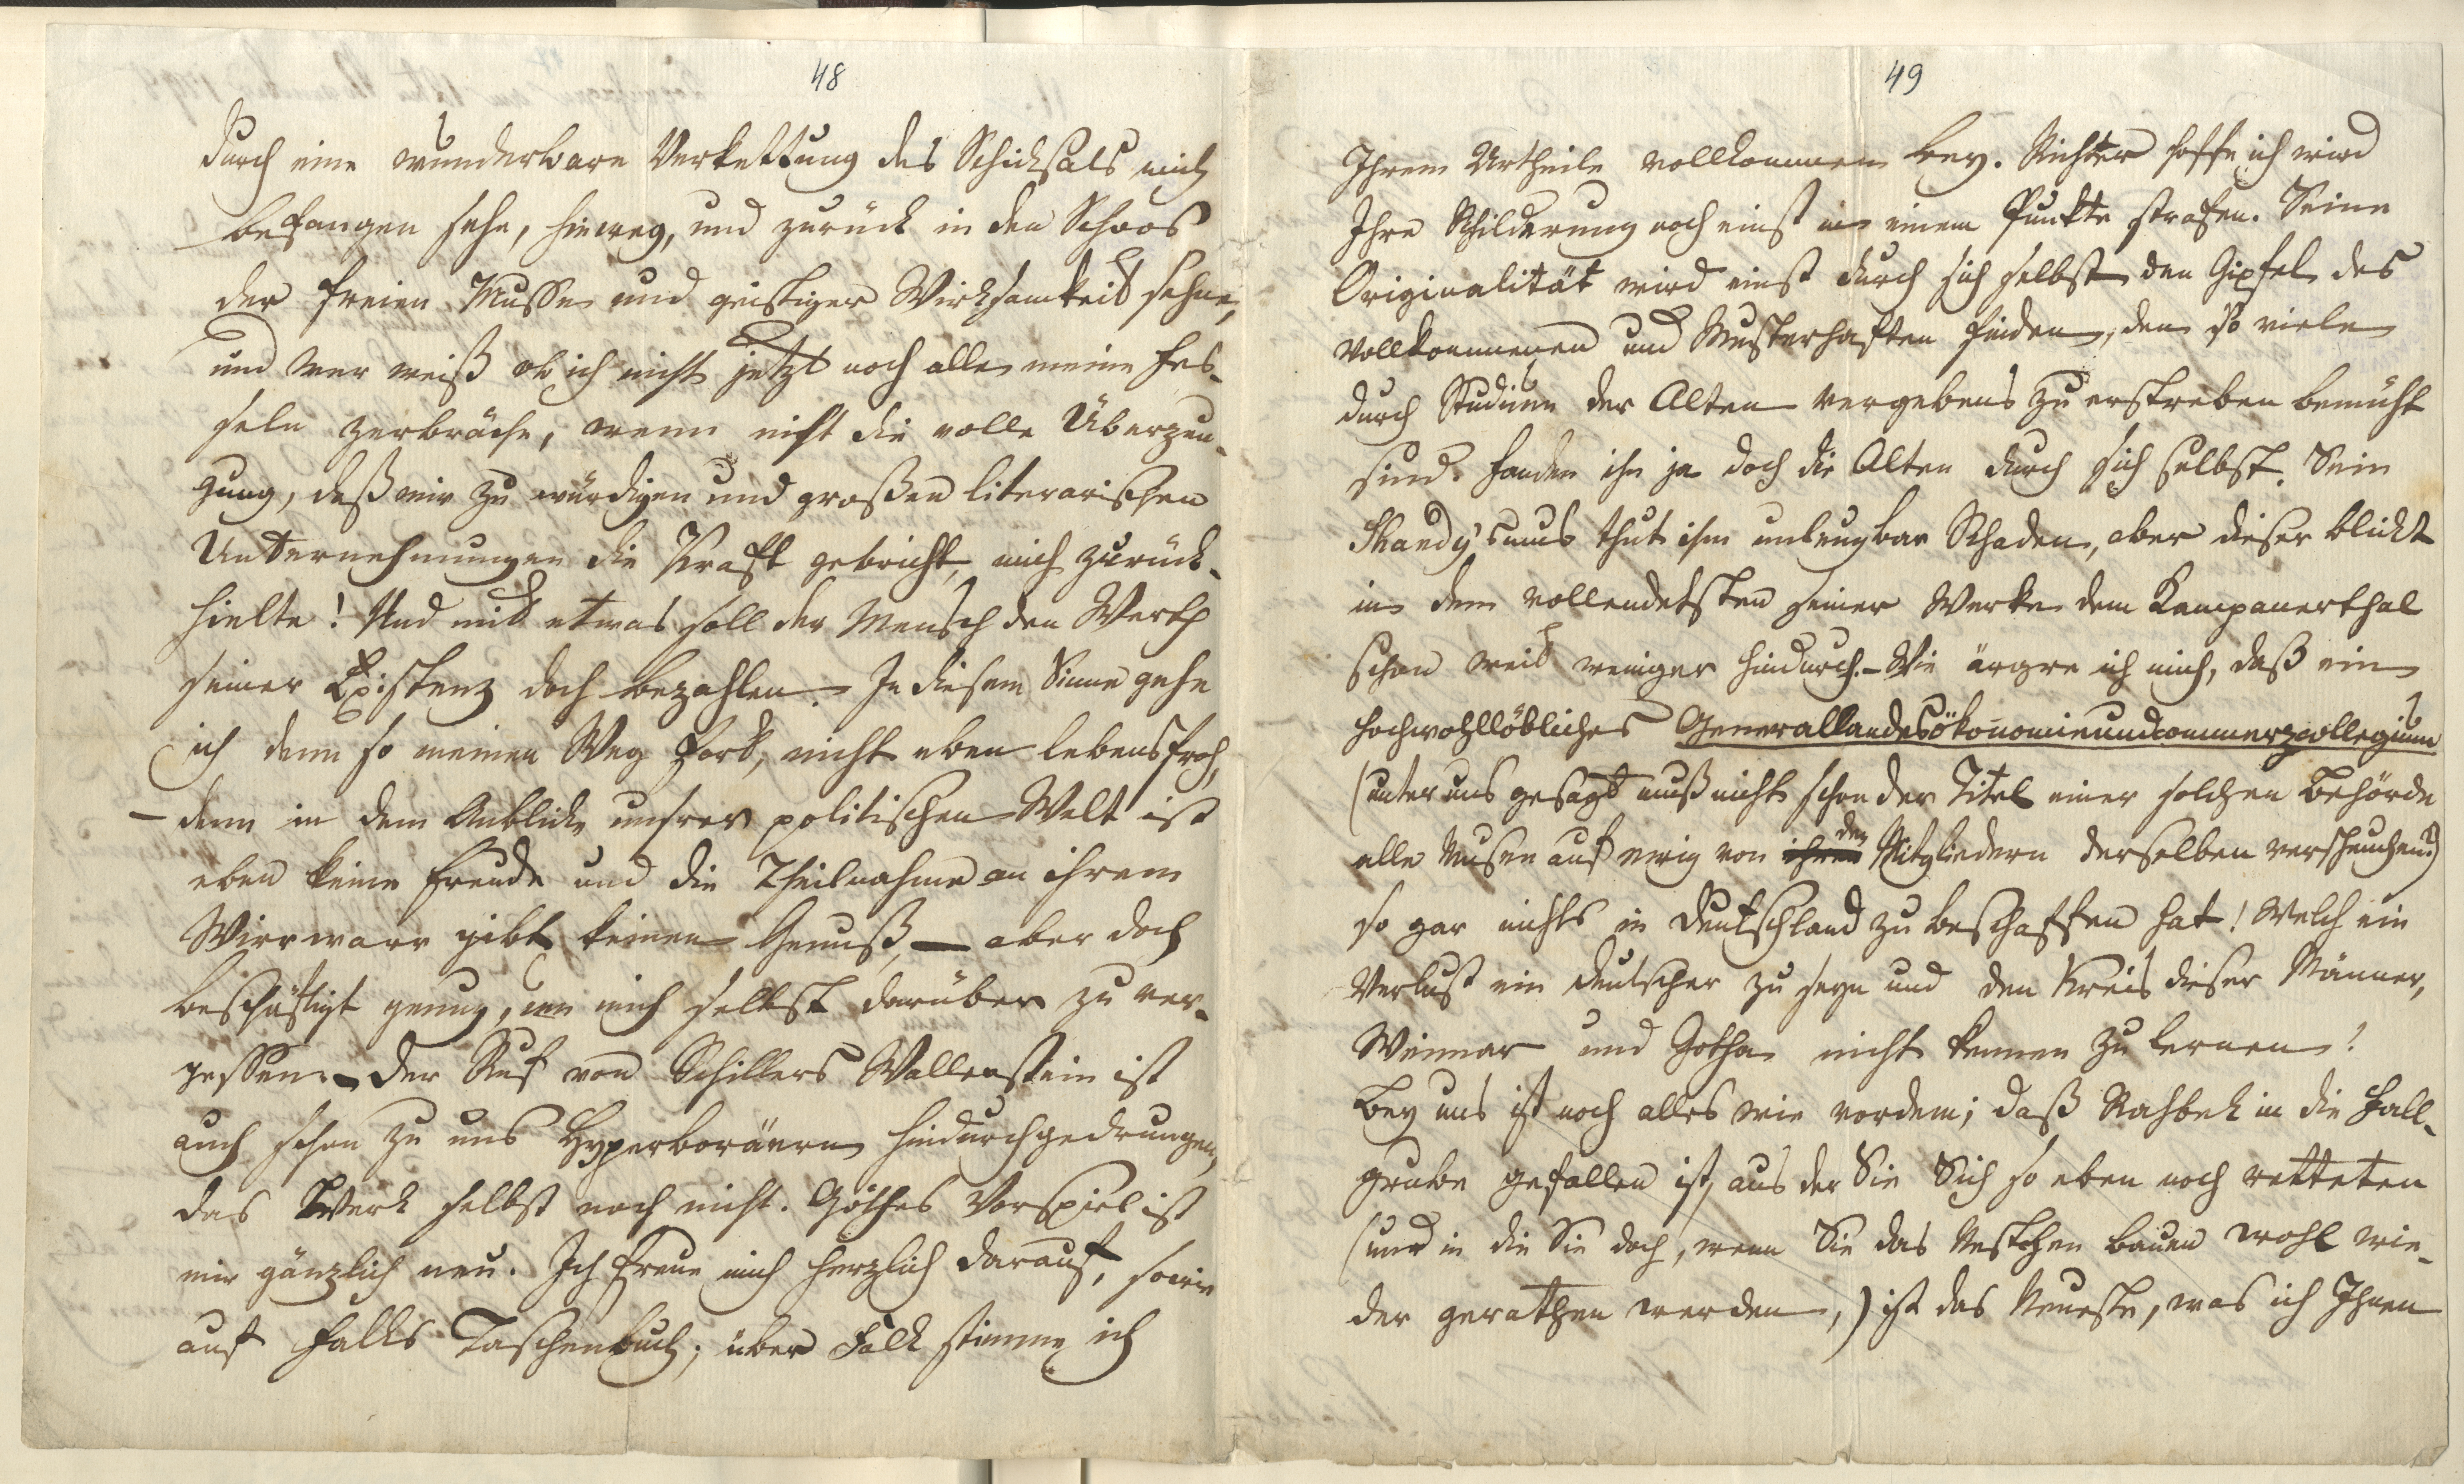 48
durch eine wunderbare Verkettung des Schicksals mich
befangen sehe, hinweg, und zurück in den Schoos
der freien Musse und geistiger Wirksamkeit sehne,
und wer weiß ob ich nicht jetzt noch alle meine Fes-
seln zerbräche, wenn nicht die volle Überzeu-
gung, daß mir zu würdigen und großen literarischen
Unternehmungen die Kraft gebricht, mich zurück-
hielte! Und mit etwas soll der Mensch den Werth
seiner Existenz doch bezahlen. In diesem Sinne gehe
ich denn so meinen Weg fort, nicht eben lebensfroh,
– denn in dem Anblicke unsrer politischen Welt ist
eben keine Freude und die Theilnahme an ihrem
Wirrwarr gibt keinen Genuß, – aber doch
beschäftigt genug, um mich selbst darüber zu ver-
gessen. – Der Ruf von Schillers Wallenstein ist
auch schon zu uns Hyperboräern hindurchgedrungen,
das Werk selbst noch nicht. Göthes Vorspiel ist
mir gänzlich neu. Ich freue mich herzlich darauf, sowie
auf Falks Taschenbuch; über Falk stimme ich
49
Ihrem Urtheile vollkommen bey. Richter hoffe ich wird
Ihre Schilderung noch einst in einem Punkte strafen. Seine
Originalität wird einst durch sich selbst den Gipfel des
Vollkommenen und Musterhaften finden, den so viele
durch Studium der Alten vergebens zu erstreben bemüht
sind. Fanden ihn ja doch die Alten durch sich selbst. Sein
Shandysmus thut ihm unleugbar Schaden, aber dieser blickt
in dem vollendetsten seiner Werke dem Kampanerthal
schon weit weniger hindurch. – Wie ärgre ich mich, daß ein
hochwohllöbliches Generallandesökonomieundcommerzcollegium
(unter uns gesagt muß nicht schon der Titel einer solchen Behörde
alle Musen auf ewig von ihren den Mitgliedern derselben verscheuchen?)
so gar nichts in Deutschland zu beschaffen hat! Welch ein
Verlust ein Deutscher zu seyn und den Kreis dieser Männer,
Weimar und Gotha nicht kennen zu lernen!
Bey uns ist noch alles wie vordem; daß Rahbek in die Fall-
grube gefallen ist, aus der Sie Sich so eben noch retteten
(und in die Sie doch, wenn Sie das Nestchen bauen wohl wie-
der gerathen werden,) ist das Neueste, was ich Ihnen